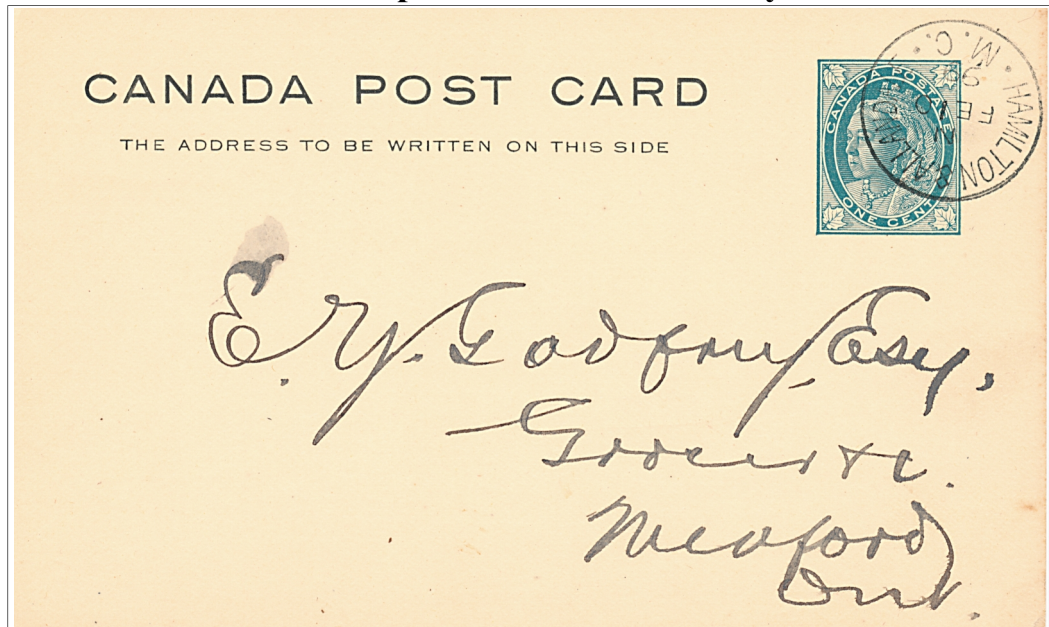 CANADA POST CARD
THE ADDRESS TO BE WRITTEN ON THIS SIDE
CANADA POSTAGE
ONE CENT
HAMILTON & ALLAN
M. C.
FE 10
98
E. Y. Godfrey, Esq,
Grocer &c.
Meaford
Ont.